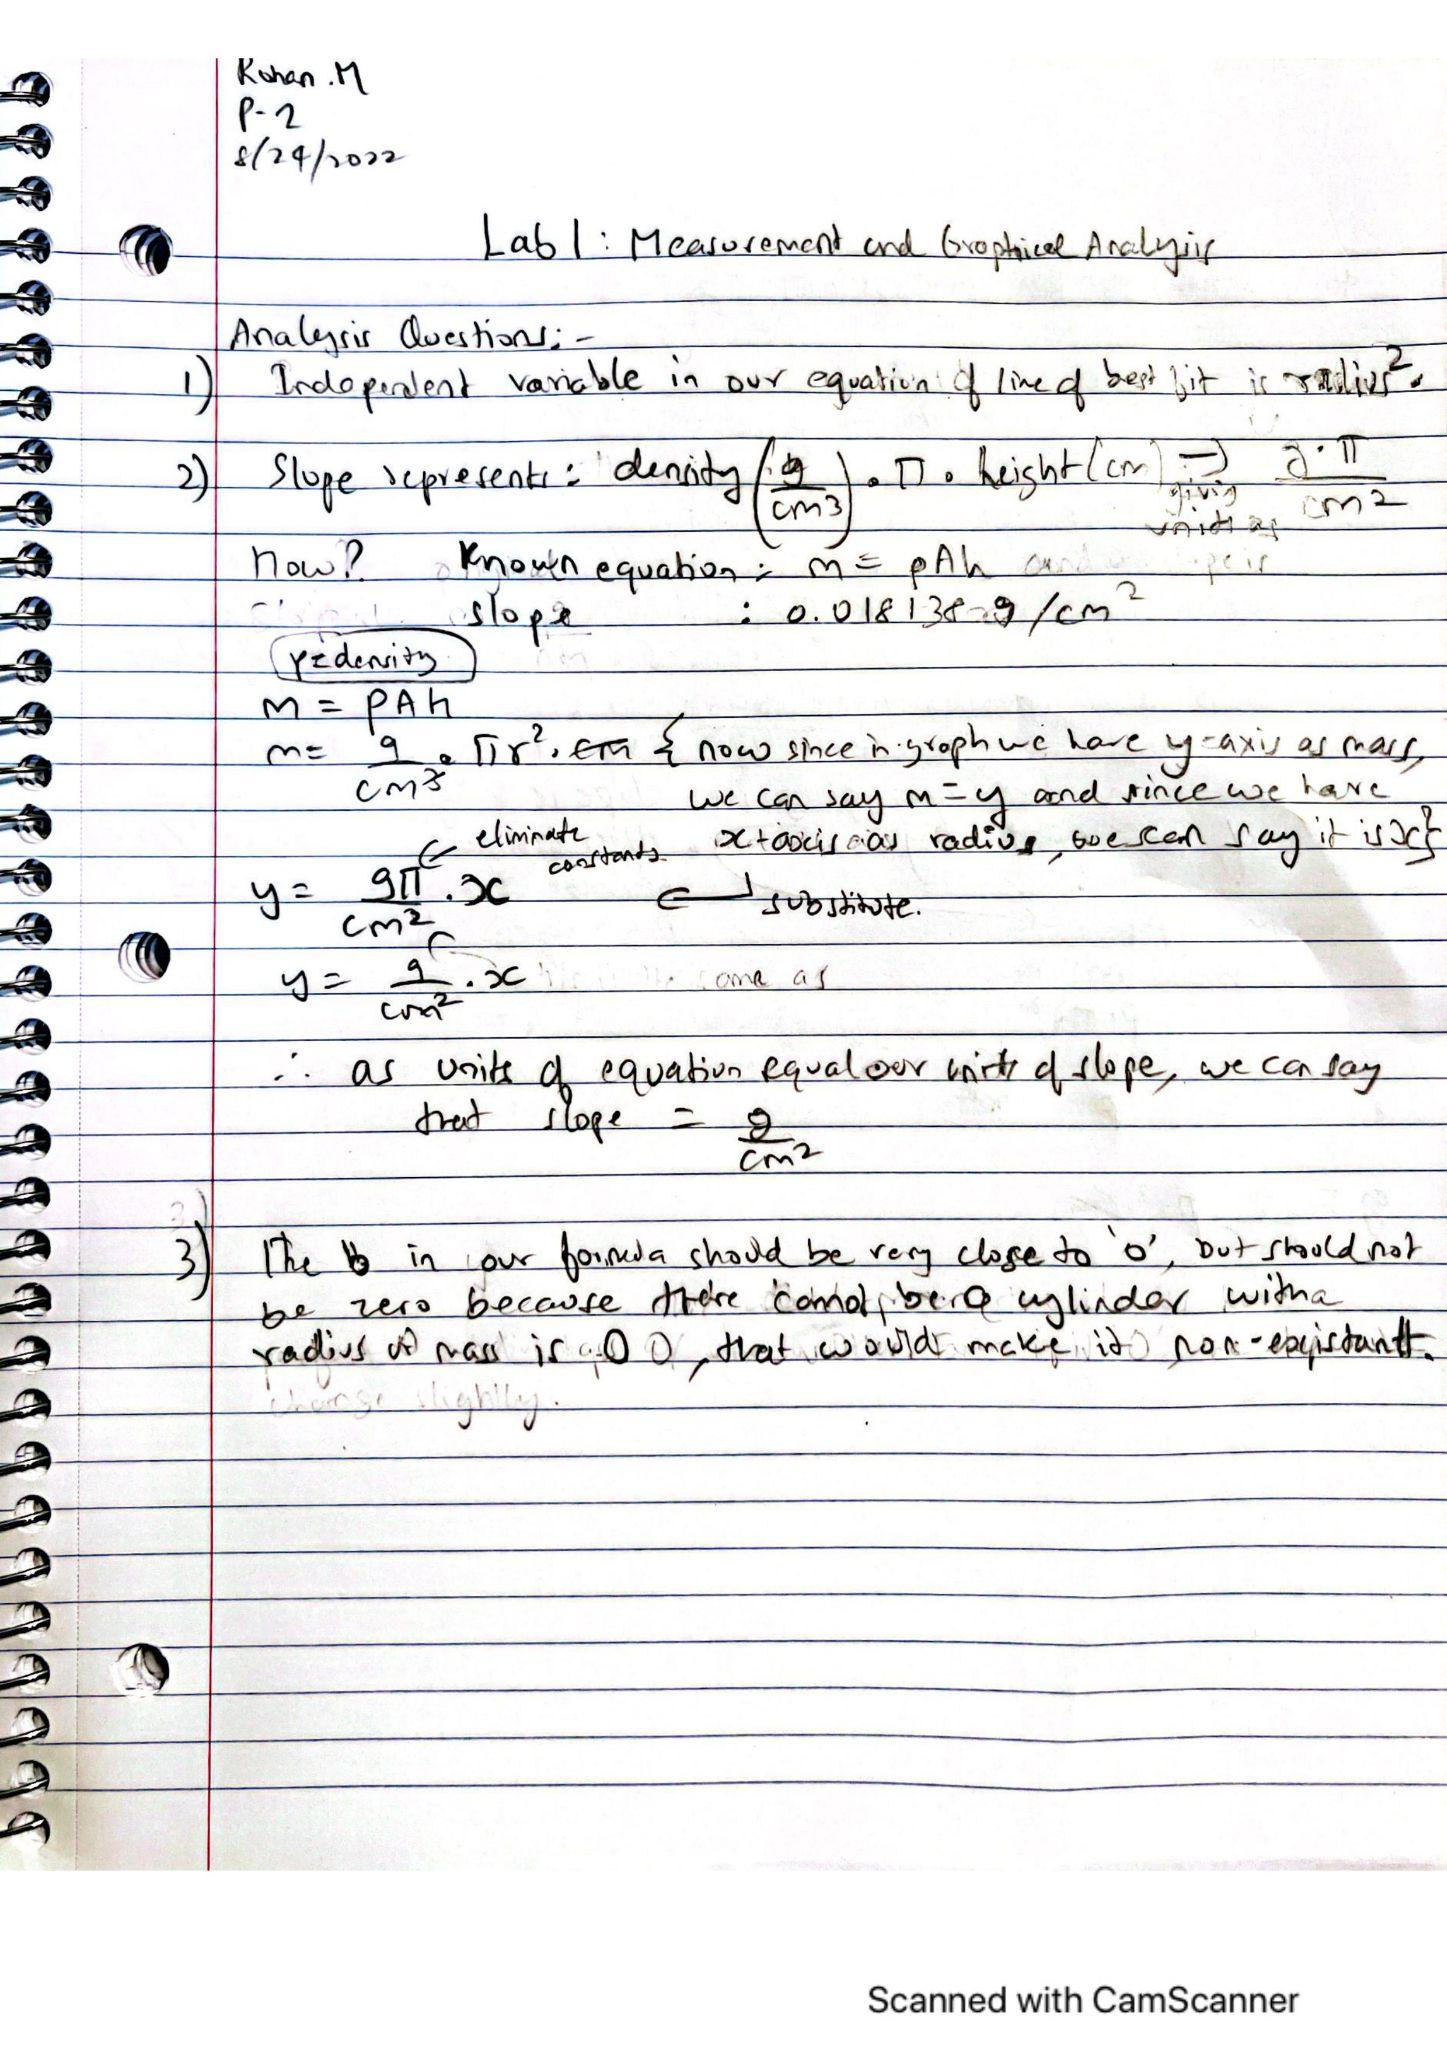 Rohan.M
P-2
8/24/2022
Lab 1: Measurement and Graphical Analysis
Analysis Questions:-
1) Independent variable in our equation of line of best fit is radius².
2) Slope represents: density (g/cm3) • π • height (cm) → giving units as g·π/cm2
How? Known equation: m = ρAh
slope : 0.018138 g/cm²
ρ=density
m = ρAh
m = g/cm3 • πr² · cm { now since in graph we have y-axis as mass,
we can say m=y and since we have
x-axis as radius, we can say it is x}
eliminate constants
y = gπ/cm2 · x substitute.
y = g/cm² · x same as
∴ as units of equation equal our units of slope, we can say
that slope = g/cm2
3) The b in our formula should be very close to '0', but should not
be zero because there cannot be a cylinder with a
radius mass is 0, that would make it non-existant.
change slightly.
Scanned with CamScanner